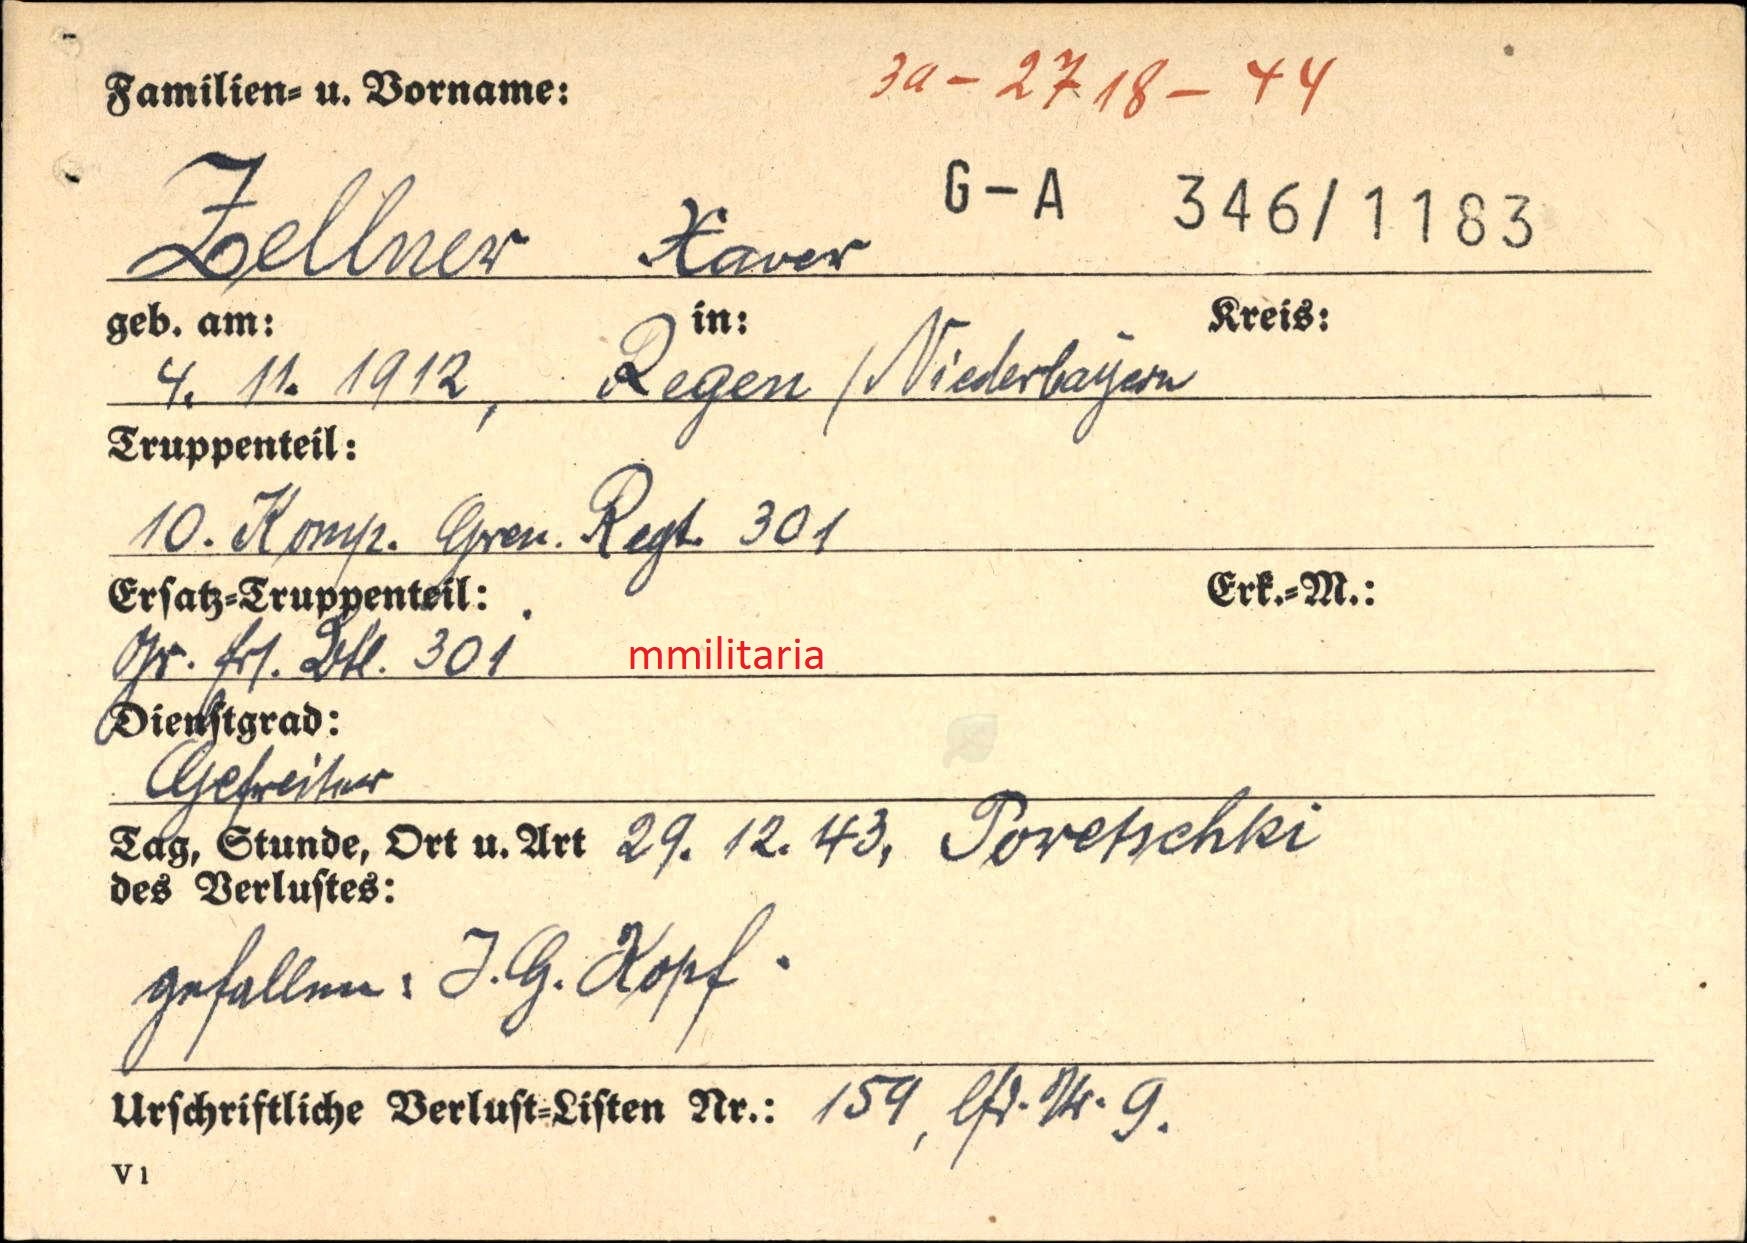 Familien- u. Vorname:
3a - 2718 - 44
Zellner Xaver
G-A 346/1183
geb. am: in: Kreis:
4. 11. 1912, Regen / Niederbayern
Truppenteil:
10. Komp. Gren. Regt. 301
Ersatz-Truppenteil: Erk.-M.:
Gr. Ers. Btl. 301
mmilitaria
Dienstgrad:
Gefreiter
Tag, Stunde, Ort u. Art 29. 12. 43, Poretschki
des Verlustes:
gefallen: I. G. Kopf.
Urschriftliche Verlust-Listen Nr.: 159, lfd. Nr. 9.
V1